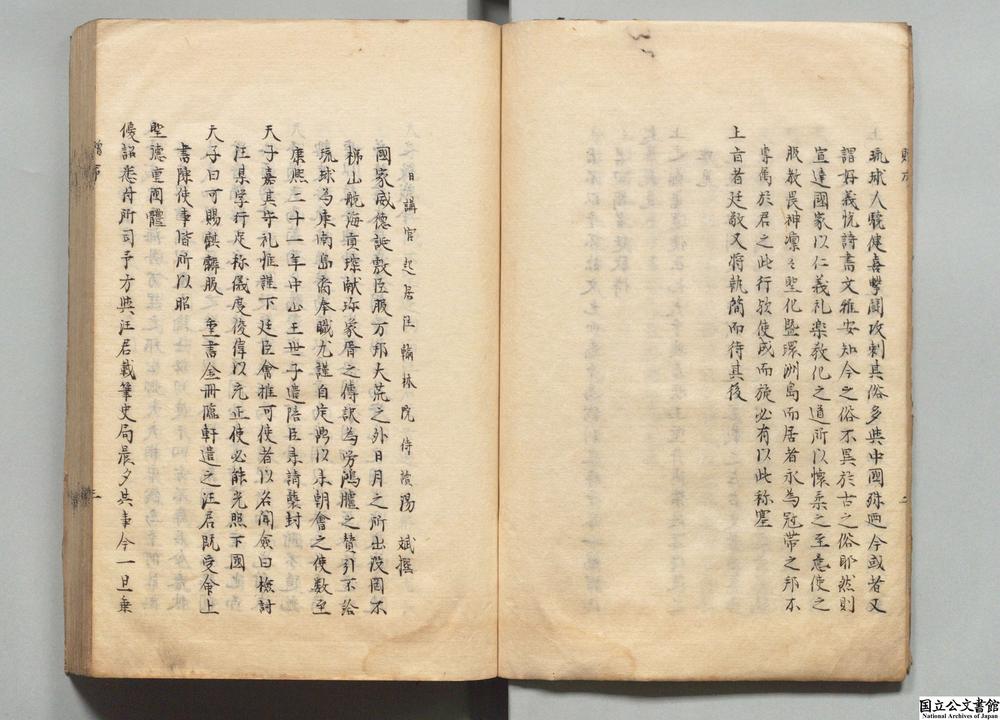 琉球人驍健喜擊鬬攻剽其俗多與中國殊趣今或者又
謂好義忱詩書文雅安知今之俗不異於古之俗耶然則
宣達國家以仁義礼楽教化之道所以懷柔之至意使之
服教畏神凜〻聖化暨環洲島而居者永為冠帶之邦不
専属於君之此行欤使成而旋必有以此称塞
上盲者廷敬又将執簡而待其後
二
日講官起居注翰林院侍讀陽 斌撰
國家威德誕敷臣服万邦大荒之外日月之所出没罔不
梯山航海貢琛献珎象胥之傳訳為勞鴻臚之賛引不給
琉球為東南島裔奉職尤謹自定鼎以来朝會之使數至
康熙二十一年中山王世子遣陪臣来請襲封
天子嘉其守礼惟謹下廷臣會推可使者以名聞僉曰檢討
汪某学行足称儀度俊偉以充正使必能光照下國
天子曰可賜麒麟服 重書金冊臨軒遣之汪居既受命上
書陳使事皆所以昭
聖德重國體
優詔悉付所司予方與汪居載筆史局晨夕共事今一旦乗
贈序
三
国立公文書館
National Archives of Japan